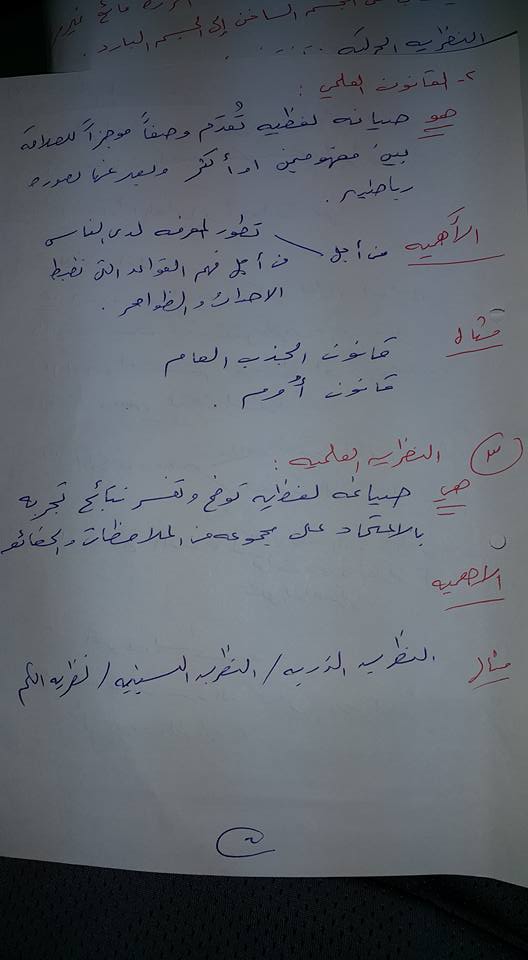 الجسم الساخن إلى الجسم البارد .
النظرية الحركية
٢- القانون العلمي :
هو صياغه لفظيه تُقدم وصفاً موجزاً للعلاقة
بين مفهومين او أكثر ويعبر عنها بصوره
رياضيه .
الأهميه من أجل تطور المعرفه لدى الناس
من أجل فهم القواعد التي تضبط
الاحداث والظواهر .
مثال قانون الجذب العام
قانون أُوم .
٣ النظريه العلميه :
هي صياغه لفظيه توضح وتفسر نتائج تجربه
بالاعتماد على مجموعه من الملاحظات والحقائق
الاهميه
مثال النظريه الذريه / النظريه النسبيه / نظريه الكم